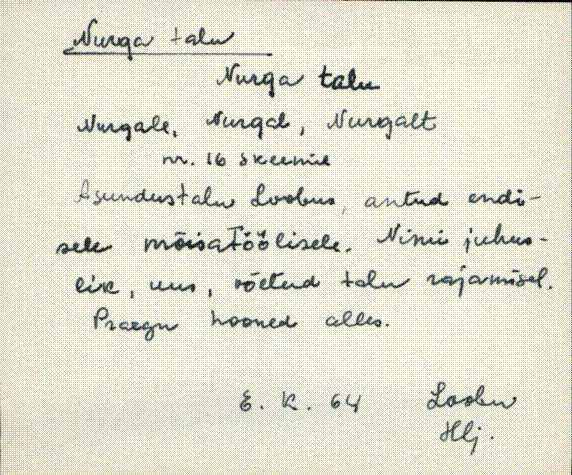 Nurga talu
Nurga talu
Nurgale, Nurgal, Nurgalt
nr. 16 skeemil
Asundustalu Loobus, antud endi-
sele mõisatöölisele. Nimi juhus-
lik, uus, võetud talu rajamisel.
Praegu hooned alles.
E. K. 64 Loobu
Hlj.